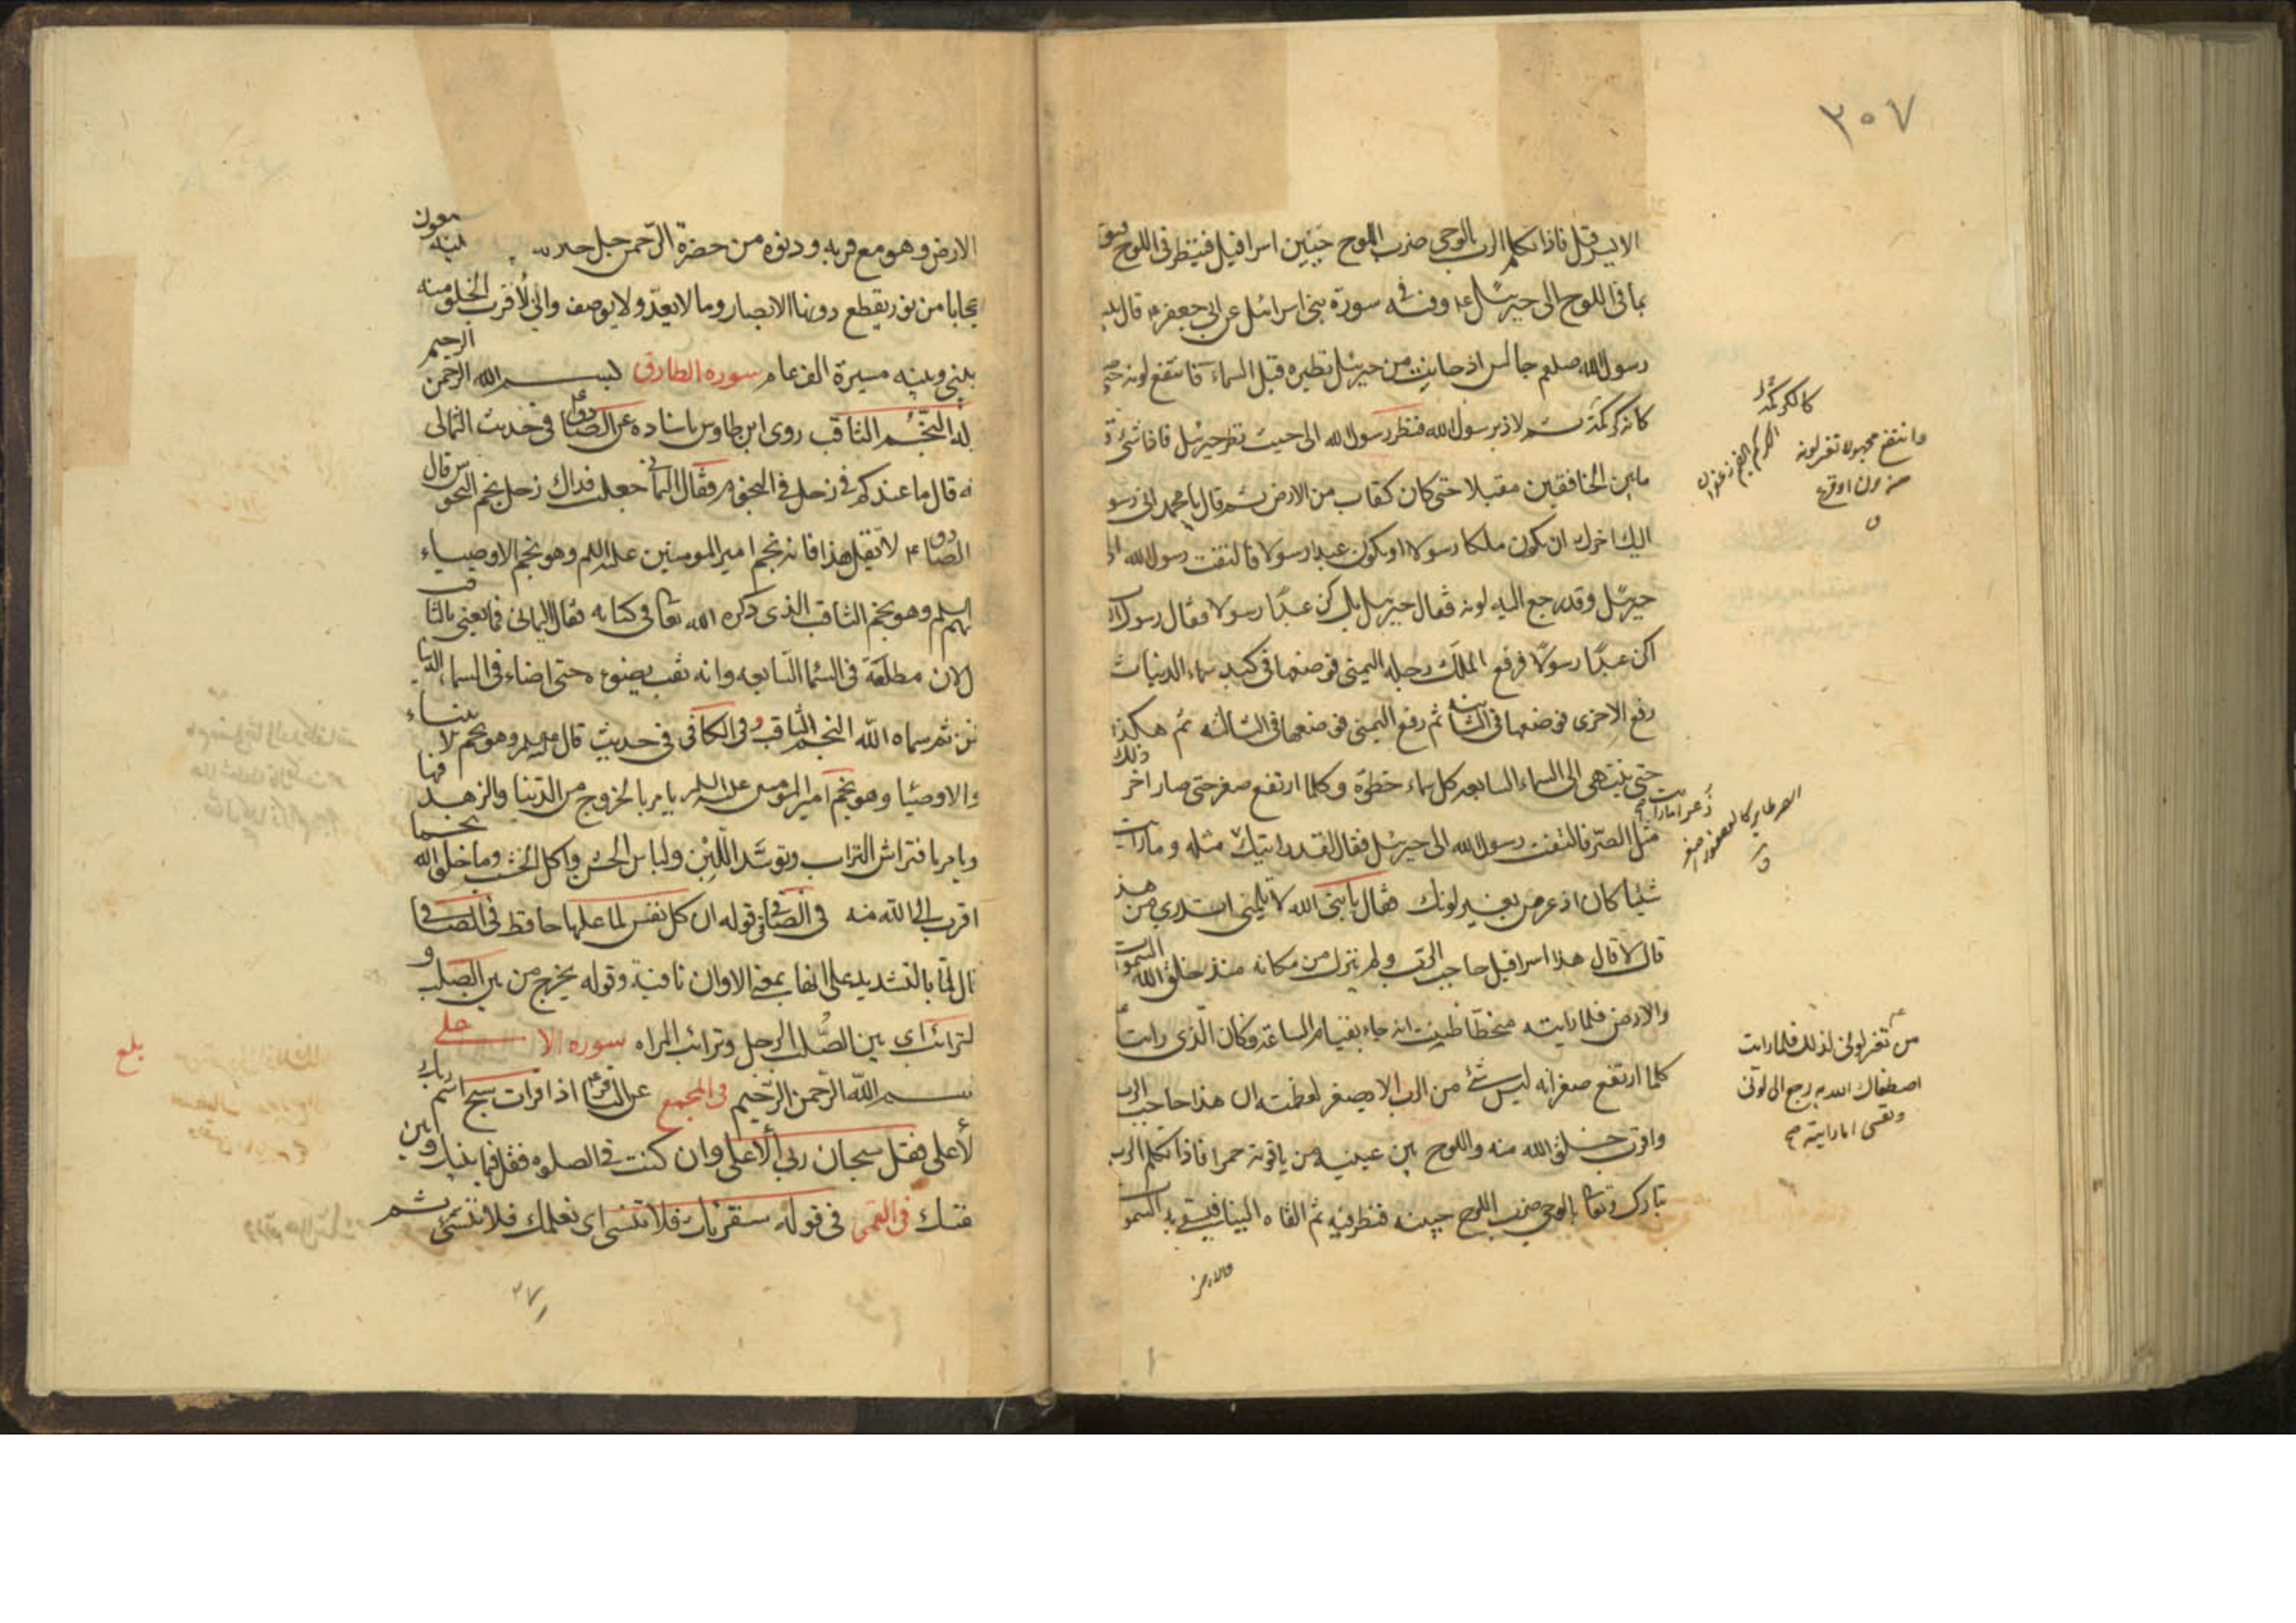 ٣٠٧
الايسر قل فاذا تكلم الرب بالوحى ضرب اللوح جبين اسرافيل فينظر فى اللوح فيوحى
بما فى اللوح الى جبرئيل ع وفيه فى سورة بنى اسرائيل عن ابى جعفر ع قال بينا
رسول الله صلعم جالس اذ حانت من جبرئيل نظرة قبل السماء فانتقع لونه حتى
كانه كركمة ثم لاذ برسول الله فنظر رسول الله الى حيث نظر جبرئيل فاذا شئ قد
مابين الخافقين مقبلا حتى كان كقاب من الارض ثم قال يا محمد انى رسو
اليك اخبرك ان تكون ملكا رسولا او تكون عبدا رسولا فالتفت رسول الله الى
جبرئيل وقد رجع اليه لونه فقال جبرئيل بل كن عبدًا رسولا فقال رسول
اكن عبدًا رسولًا فرفع الملك رجله اليمنى فوضعها فى كبد سماء الدنيا ثم
رفع الاخرى فوضعها فى الثانية ثم رفع اليمنى فوضعها فى الثالثة ثم هكذا
حتى ينتهى الى السماء السابعه كل سماء خطوة وكلما ارتفع صغر حتى صار اخر ذلك
مثل الصر فالتفت رسول الله الى جبرئيل فقال لقد رايتك مثله وما رايت
شيئا كان اذعر من تغير لونك فقال يا نبى الله لا تلمنى اتدرى من هذا
قال لا قال هذا اسرافيل حاجب الرب ولم ينزل من مكانه منذ خلق الله السموات
والارض فلما رايته منحطا ظننت انه جاء بقيام الساعة فكان الذى رايت
كلما ارتفع صغر انه ليس شئ من الرب الا يصغر لعظمته ان هذا حاجب الرب
واقرب خلق الله منه واللوح بين عينيه من ياقوتة حمرا فاذا تكلم الرب
تبارك وتعا بالوحى ضرب اللوح جبينه فنظر فيه ثم القاه الينا فنسعى به السموات
والارض
كالكركمة
وانتقع مجهولا تغير لونه
من حزن او فزع
ق
الكركم بالضم زعفران
ذعر اما رايت
الصر طاير كالعصفور اصفر
ق
من تغير لونى لذلك فلما رايت
اصطفاك الله به رجع الى لونى
ونفسى اما رايته
الارض وهو مع قربه ودنوه من حضرة الرحمن جل جلاله بينه سبعون
حجابا من نور يقطع دونها الابصار وما لا يعد ولا يوصف وانى لأقرب الخلق منه
بينى وبينه مسيرة الف عام سوره الطارق بسم الله الرحمن الرحيم
النجم الثاقب روى ابن طاوس باسناده عن الصادق ع فى حديث الثمالى
قال ما عندكم فى زحل فى النجوم فقال اليمانى جعلت فداك زحل نجم النحوس قال
الصادق ع لا تقل هذا فانه نجم امير المومنين عليه السلم وهو نجم الاوصياء
عليهم السلم وهو نجم الثاقب الذى ذكره الله تعالى فى كتابه فقال اليمانى فما يعنى بالثاقب
لان مطلعه فى السما السابعه وانه ثقب بضوئه حتى اضاء فى السماء الدنيا
فمن ثم سماه الله النجم الثاقب وفى الكافى فى حديث قال وهو نجم الانبياء
والاوصيا وهو نجم امير المومنين عليه السلم يامر بالخروج من الدنيا والزهد فيها
ويامر بافتراش التراب وتوسد اللبن ولباس الخشن واكل الجشب وما خلق الله نجما
اقرب الى الله منه فى الصافى فى قوله ان كل نفس لما عليها حافظ فى الصافى
قال لما بالتشديد على انها بمعنى الا وان نافية وقوله يخرج من بين الصلب و
الترائب اى بين الصلب الرجل وترائب المراه سوره الاعلى
بسم الله الرحمن الرحيم فى المجمع عن الباقر ع اذا قرات سبح اسم ربك
الأعلى فقل سبحان ربى الأعلى وان كنت فى الصلوه فقل فيما بينك وبين
نفسك فى القمى فى قوله سنقرئك فلا تنسى اى نعلمك فلا تنسى ثم
بلغ